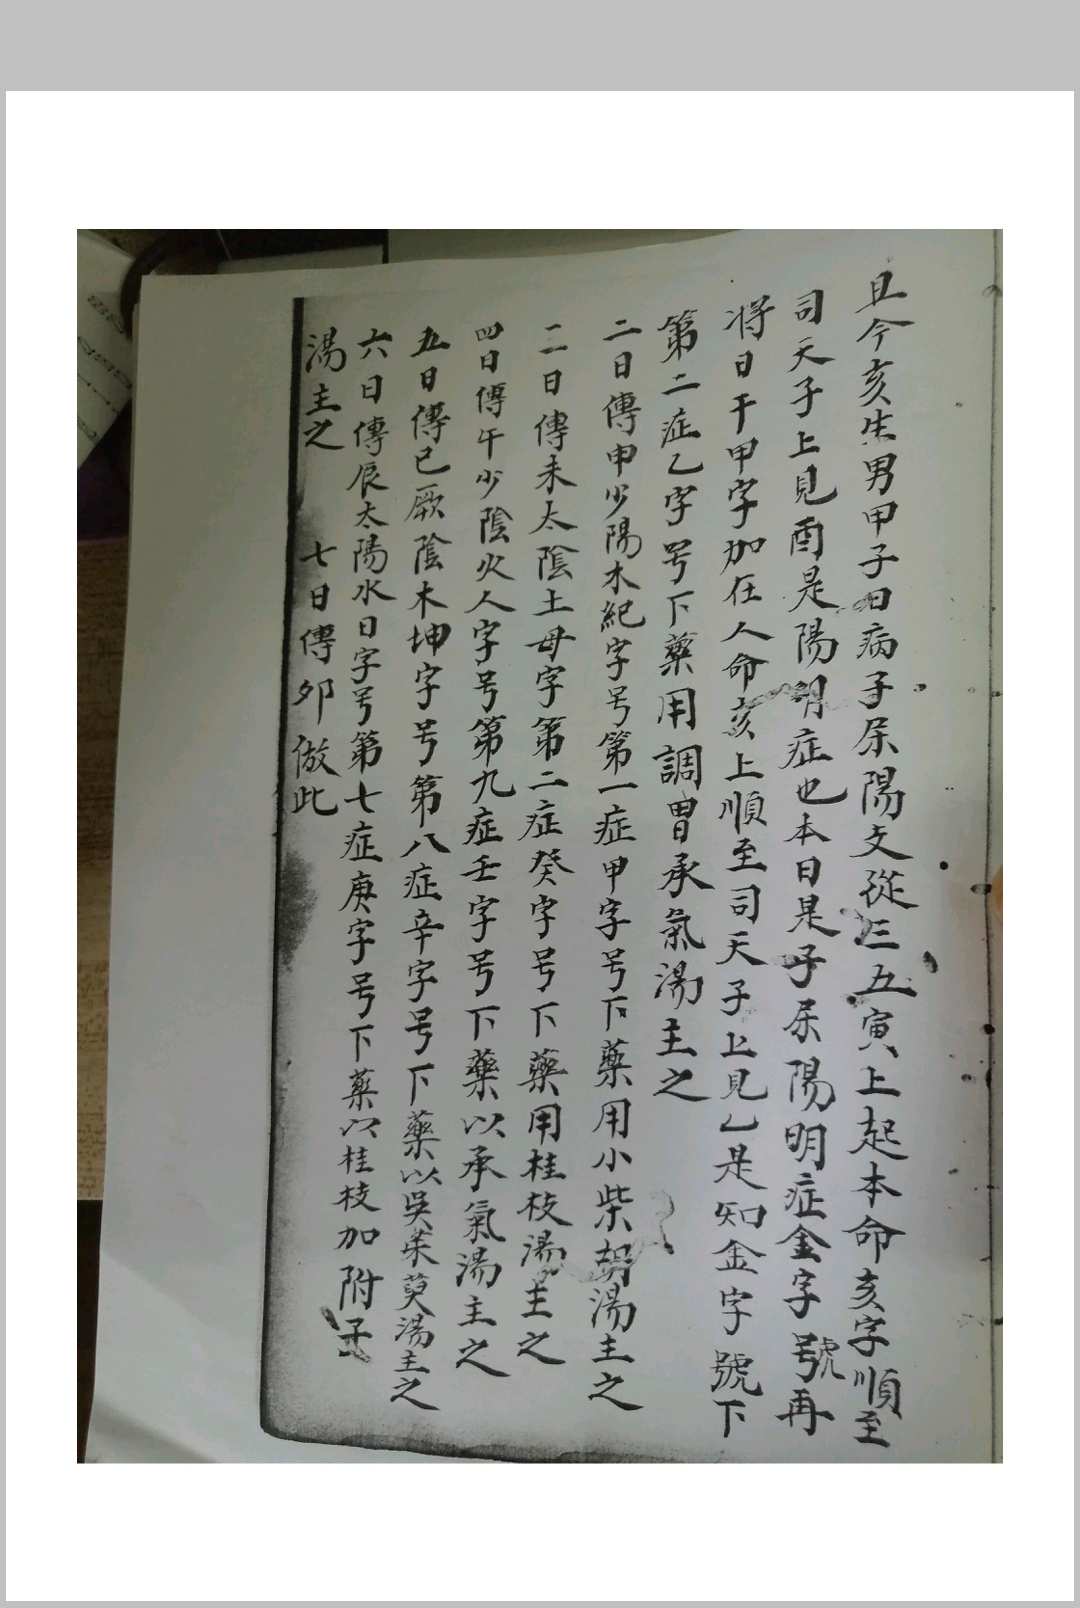 且今亥生男甲子日病子屎陽支從三五寅上起本命亥字順至
司天子上見酉是陽明症也本日是子屎陽明症金字號再
将日干甲字加在人命亥上順至司天子上見乙是知金字號下
第二症乙字号下藥用調胃承氣湯主之
二日傳申少陽木紀字号第一症甲字号下藥用小柴胡湯主之
二日傳未太陰土母字第二症癸字号下藥用桂枝湯主之
四日傳午少陰火人字号第九症壬字号下藥以承氣湯主之
五日傳巳厥陰木坤字号第八症辛字号下藥以吳茱萸湯主之
六日傳辰太陽水日字号第七症庚字号下藥以桂枝加附子
湯主之 七日傳夘倣此